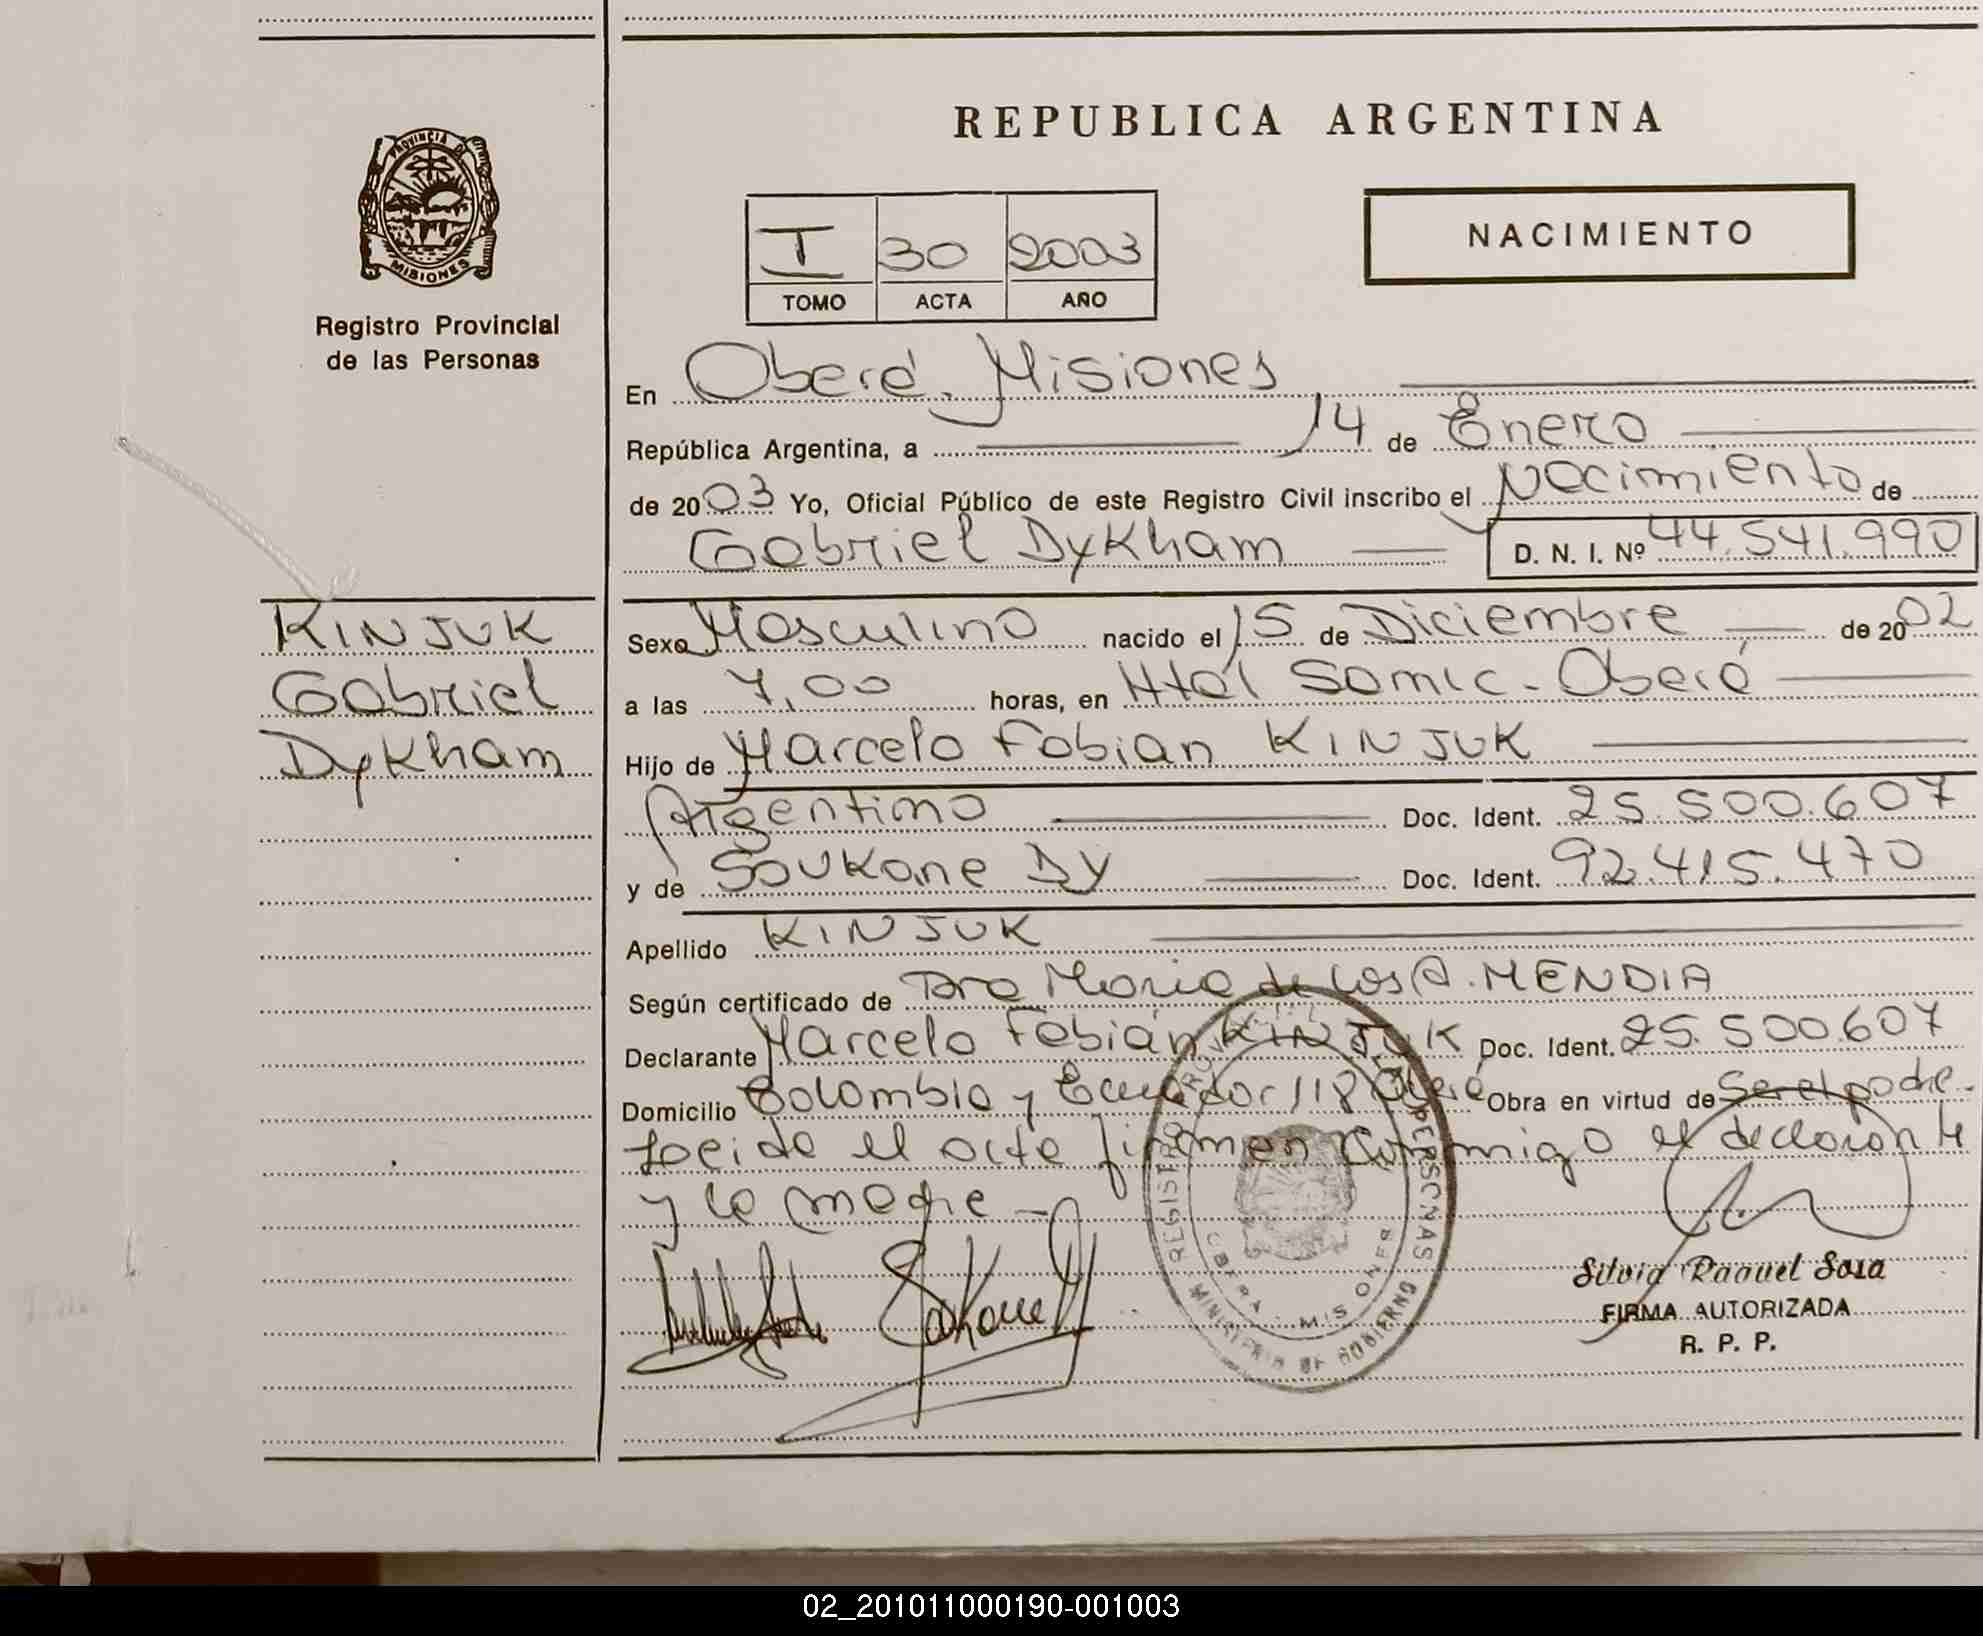 REPUBLICA ARGENTINA
PROVINCIA DE
MISIONES
Registro Provincial
de las Personas
I 30 2003
TOMO ACTA AÑO
NACIMIENTO
En Oberá, Misiones
República Argentina, a 14 de Enero
de 2003 Yo, Oficial Público de este Registro Civil inscribo el Nacimiento de
Gabriel Dykham D. N. I. Nº 44.541.990
KINJUK
Gabriel
Dykham
Sexo Masculino nacido el 15 de Diciembre de 2002
a las 7,00 horas, en Htal Samic - Oberá
Hijo de Marcelo Fabian KINJUK
Argentino Doc. Ident. 25.500.607
y de Soukane DY Doc. Ident. 92.415.470
Apellido KINJUK
Según certificado de Dra Maria de los A. MENDIA
Declarante Marcelo Fabián KINJUK Doc. Ident. 25.500.607
Domicilio Colombia y Ecuador 118 Oberá Obra en virtud de Ser el padre -
Leida el acta firman conmigo el declarante
y la madre -
REGISTRO PERSONAS
OBERA - MISIONES
MINISTERIO DE GOBIERNO
Silvia Raquel Sosa
FIRMA AUTORIZADA
R. P. P.
02_201011000190-001003